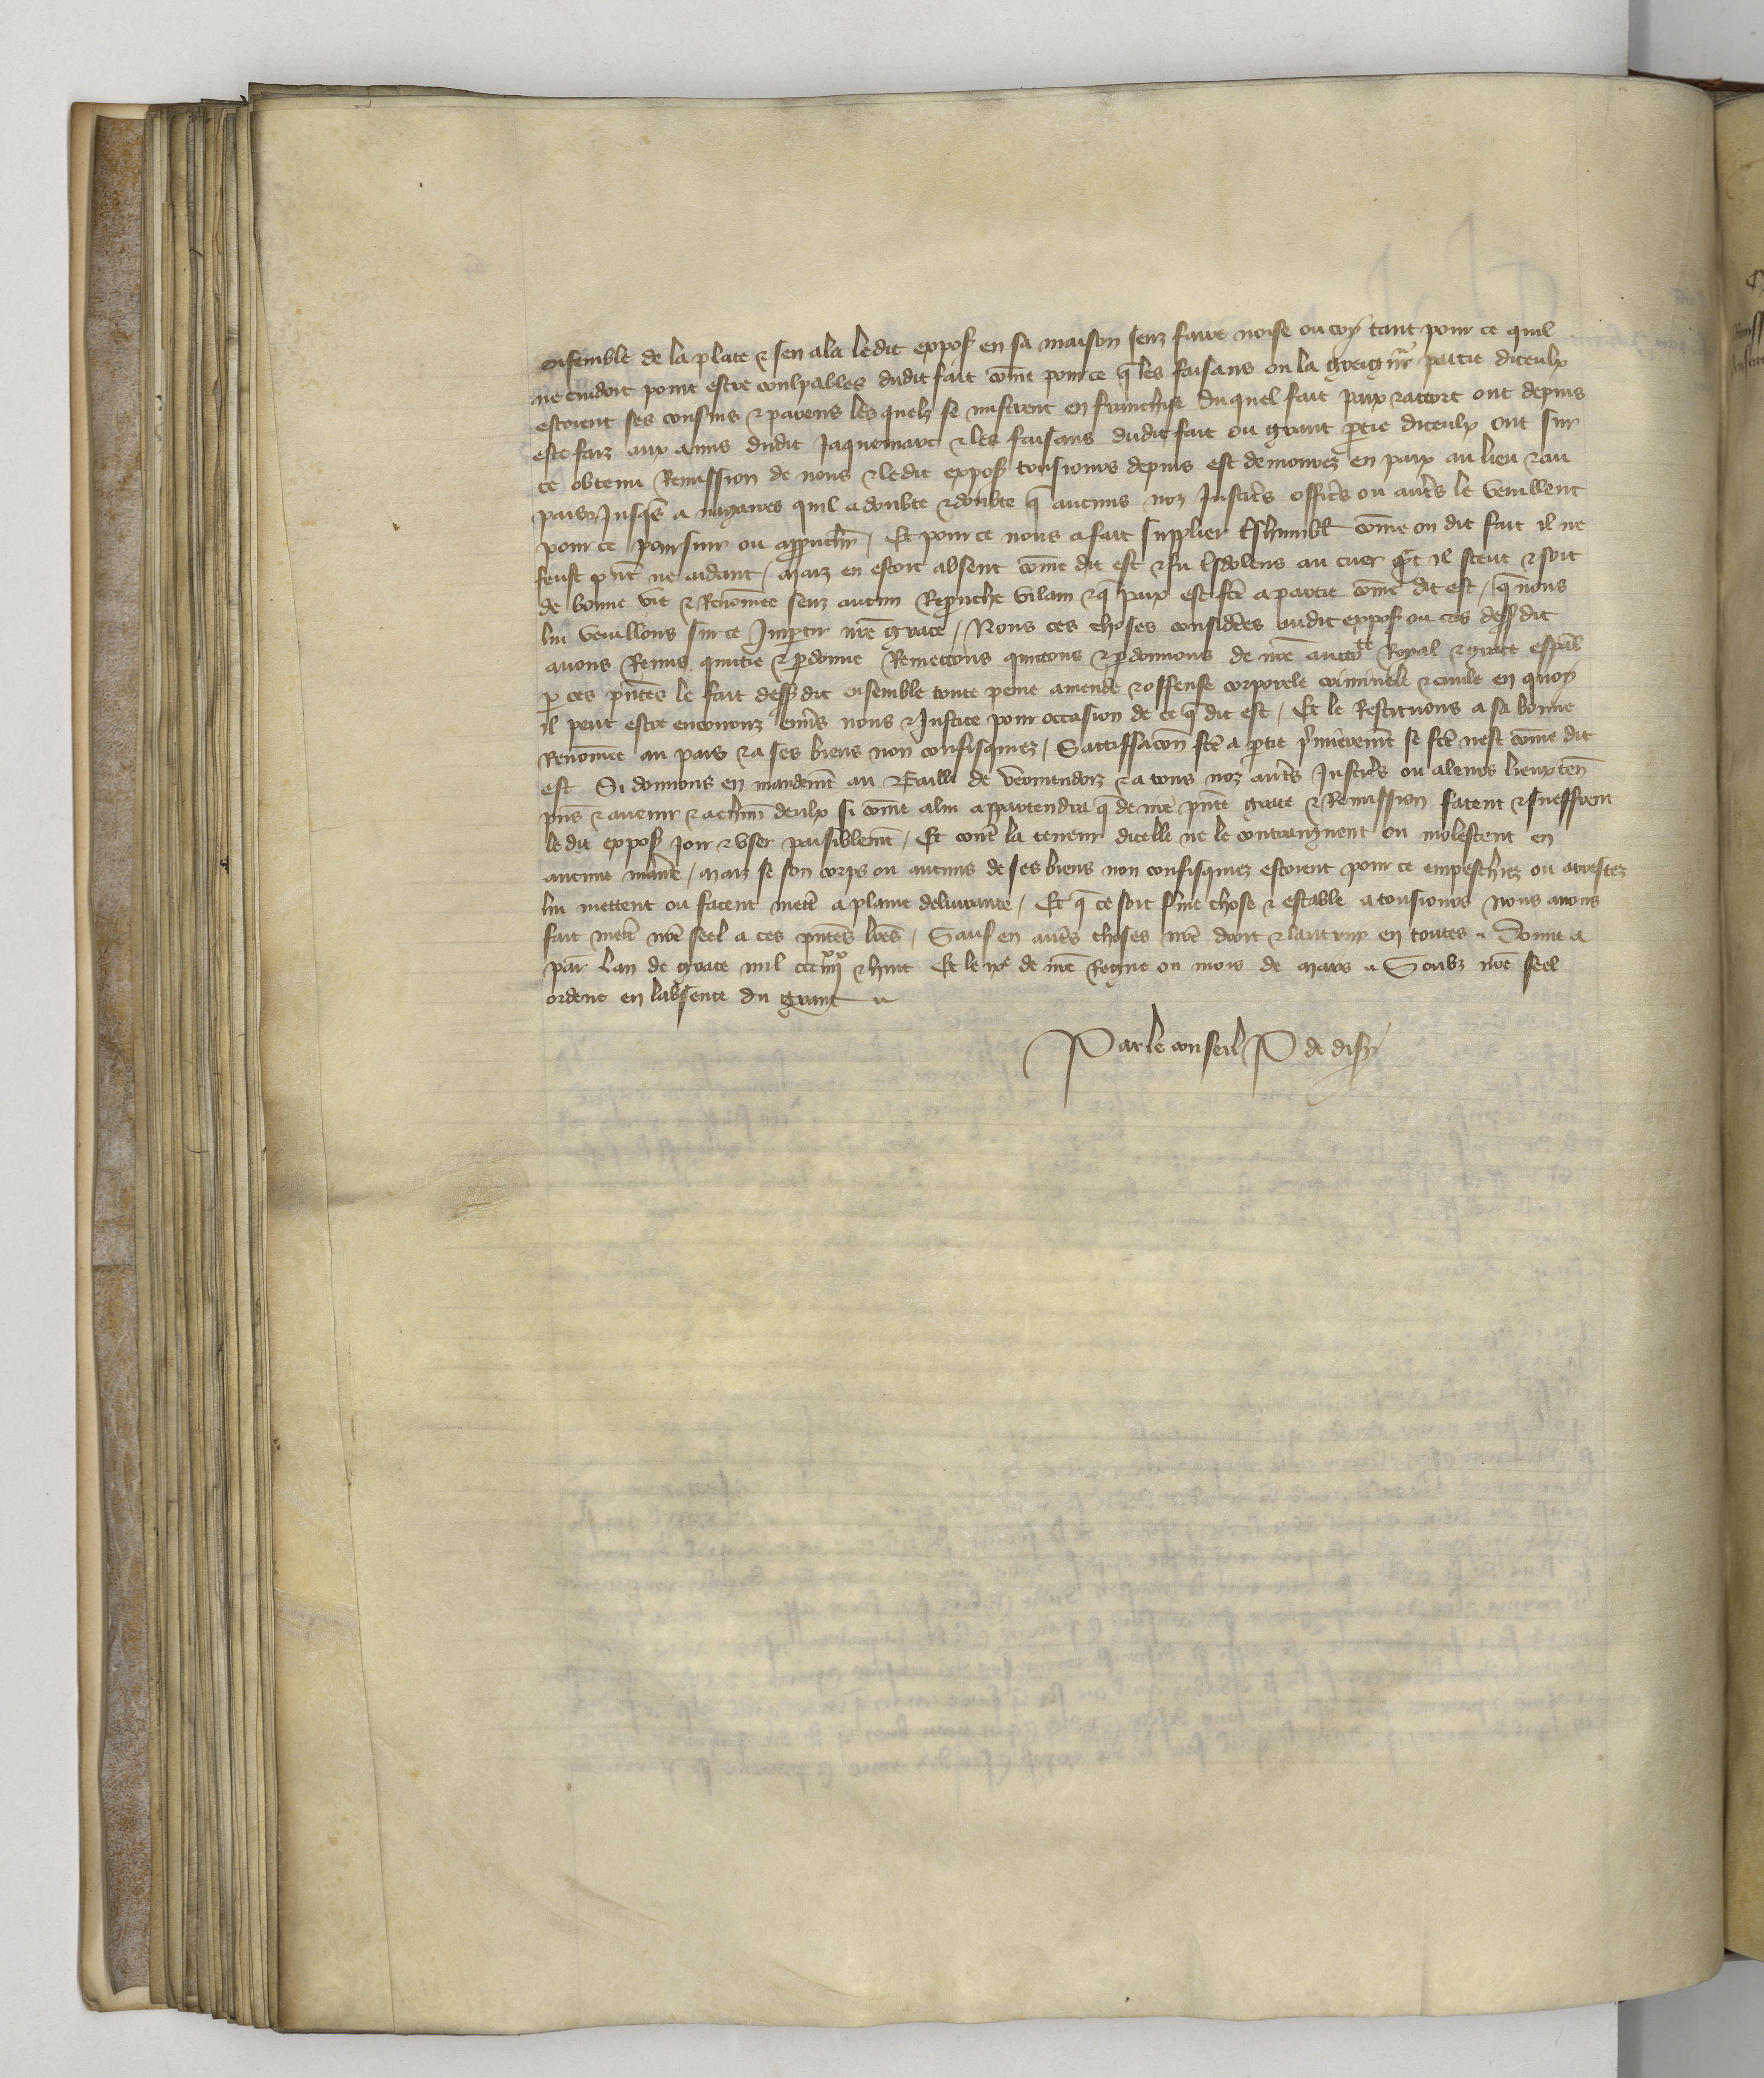 ensemble de la place & sen ala ledit expos en sa maison senz faire noise ou cry tant pour ce quil
ne cuidoit point estre coulpables dudit fait come pour ce q les faisans ou la greigneur partie diceulx
estoient ses cousins & parens les quelz se mistrent en franchise Du quel fait paix & accort ont depuis
este faiz aux amis dudit Jaquemart & les faisans dudit fait ou grant ptie diceulx ont sur
ce obtenu Remission de nous & ledit expos tousiours depuis est demourez en paix au lieu & au
pais Jusqs a nagaires quil a doubte & doubte q aucuns noz Justiciers officiers ou autres le veullent
pour ce poursuir ou approuchier / Et pour ce nous a fait supplier tshumbl come ou dit fait il ne
feust pnt ne aidant / maiz en estoit absent come dit est & fu tsdolens au cuer qnt il sceut & soit
de bonne vie & Renomee senz aucun Reprouche vilain & q paix est fte a partie come dit est / q nous
lui veuillons sur ce Impartir nre grace / Nous ces choses considees audit expos ou cas dessdit
auons Remis quittie & pdonne Remettons quittons & pdonnons de nre auctorite Royal & grace espal
p ces pntes le fait dessdit ensemble toute peine amende & offense corporele criminele & ciuile en quoy
il peut estre encouruz enuers nous & Justice pour occasion de ce q dit est / Et le Restituons a sa bonne
Renomee au pais & a ses biens non confisquiez / Sattiffacon fte a ptie pmierement se fte nest come dit
est Si donnons en mandemt au Bailli de Vermendois & a tous noz autres Justiciers ou a leurs lieuxten
pns & auenir & a chun deulx si come a lui appartendra q de nre pnte grace & Remission facent & sueffrent
ledit expos Joir & vser paisiblemt / Et contre la teneur dicelle ne le contraingnent ou molestent en
aucune maniere / maiz se son corps ou aucuns de ses biens non confisquiez estoient pour ce empeschiez ou arrestez
lui mettent ou facent mettre a plaine deliurance / Et q ce soit ferme chose & estable a tousiours nous auons
fait mettre nre seel a ces pntes lres / Sauf en autres choses nre droit & lautruy en toutes Donne a
Par Lan de grace mil ccc iiijxx & huit Et le ixe de nre Regne ou mois de Mars Soubz nre seel
ordene en labsence du grant
Par le conseil P de disy